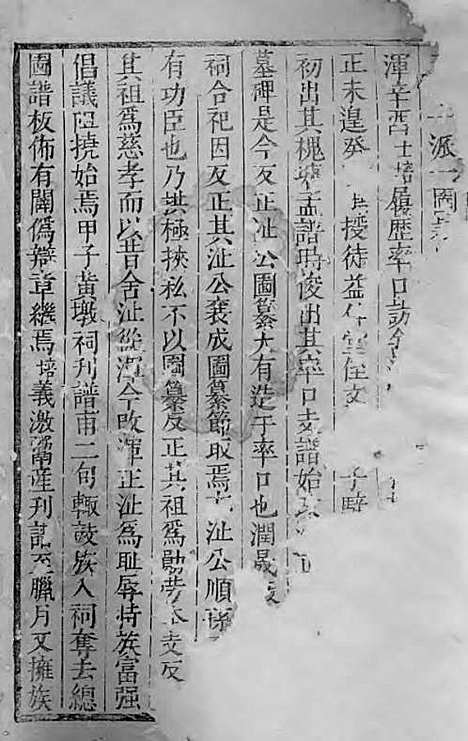 派一圖
渾辛酉士培履歷率口訪
正未遑 授徒益 堂侄文
初出其槐塘孟譜時俊出其率口支譜始
墓碑是今友正其沚公圖纂大有造于率口也潤晟
祠合祀因友正其沚公裘成圖纂節取焉 沚公順孫
有功臣也乃洪極挾私不以圖纂反正其祖為勛勞 支反
其祖為慈孝而以昔舍沚從渾今改渾正沚為耻辱恃族富强
倡議阻撓始焉甲子黃墩祠刊譜甫二旬輒鼓族入祠奪去總
圖譜板佈有闢僞辯章繼焉培義激鬻產刊誌至臘月又擁族